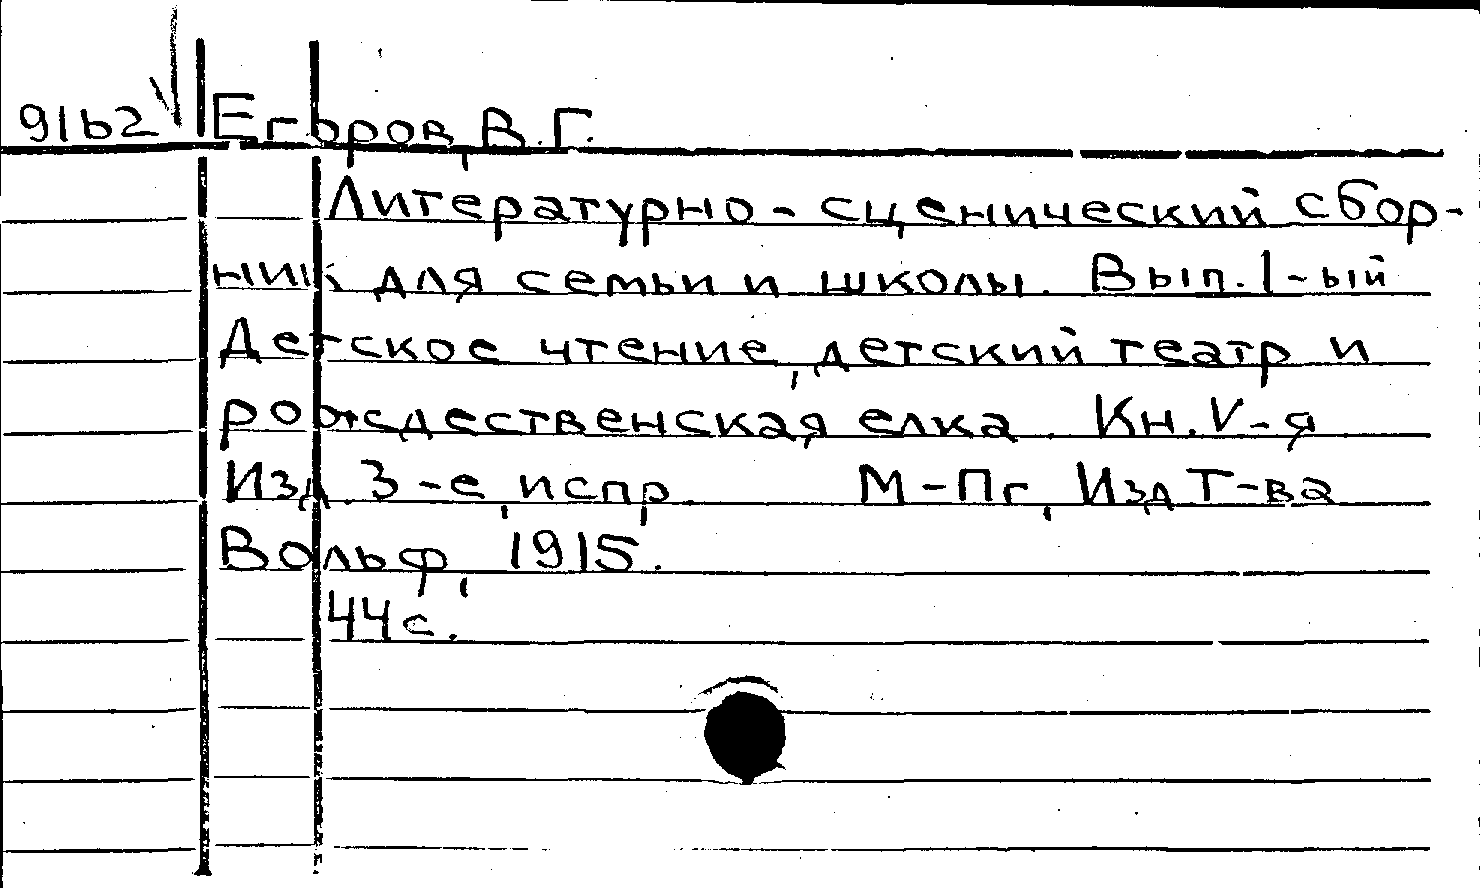 91b2 Егоров, В.Г.
Литературно-сценический сбор-
ник для семьи и школы. Вып. 1-ый
Детское чтение, детский театр и
рождественская елка. Кн. V-я
Изд. 3-е, испр. М-Пг, Изд Т-ва
Вольф, 1915.
44с.